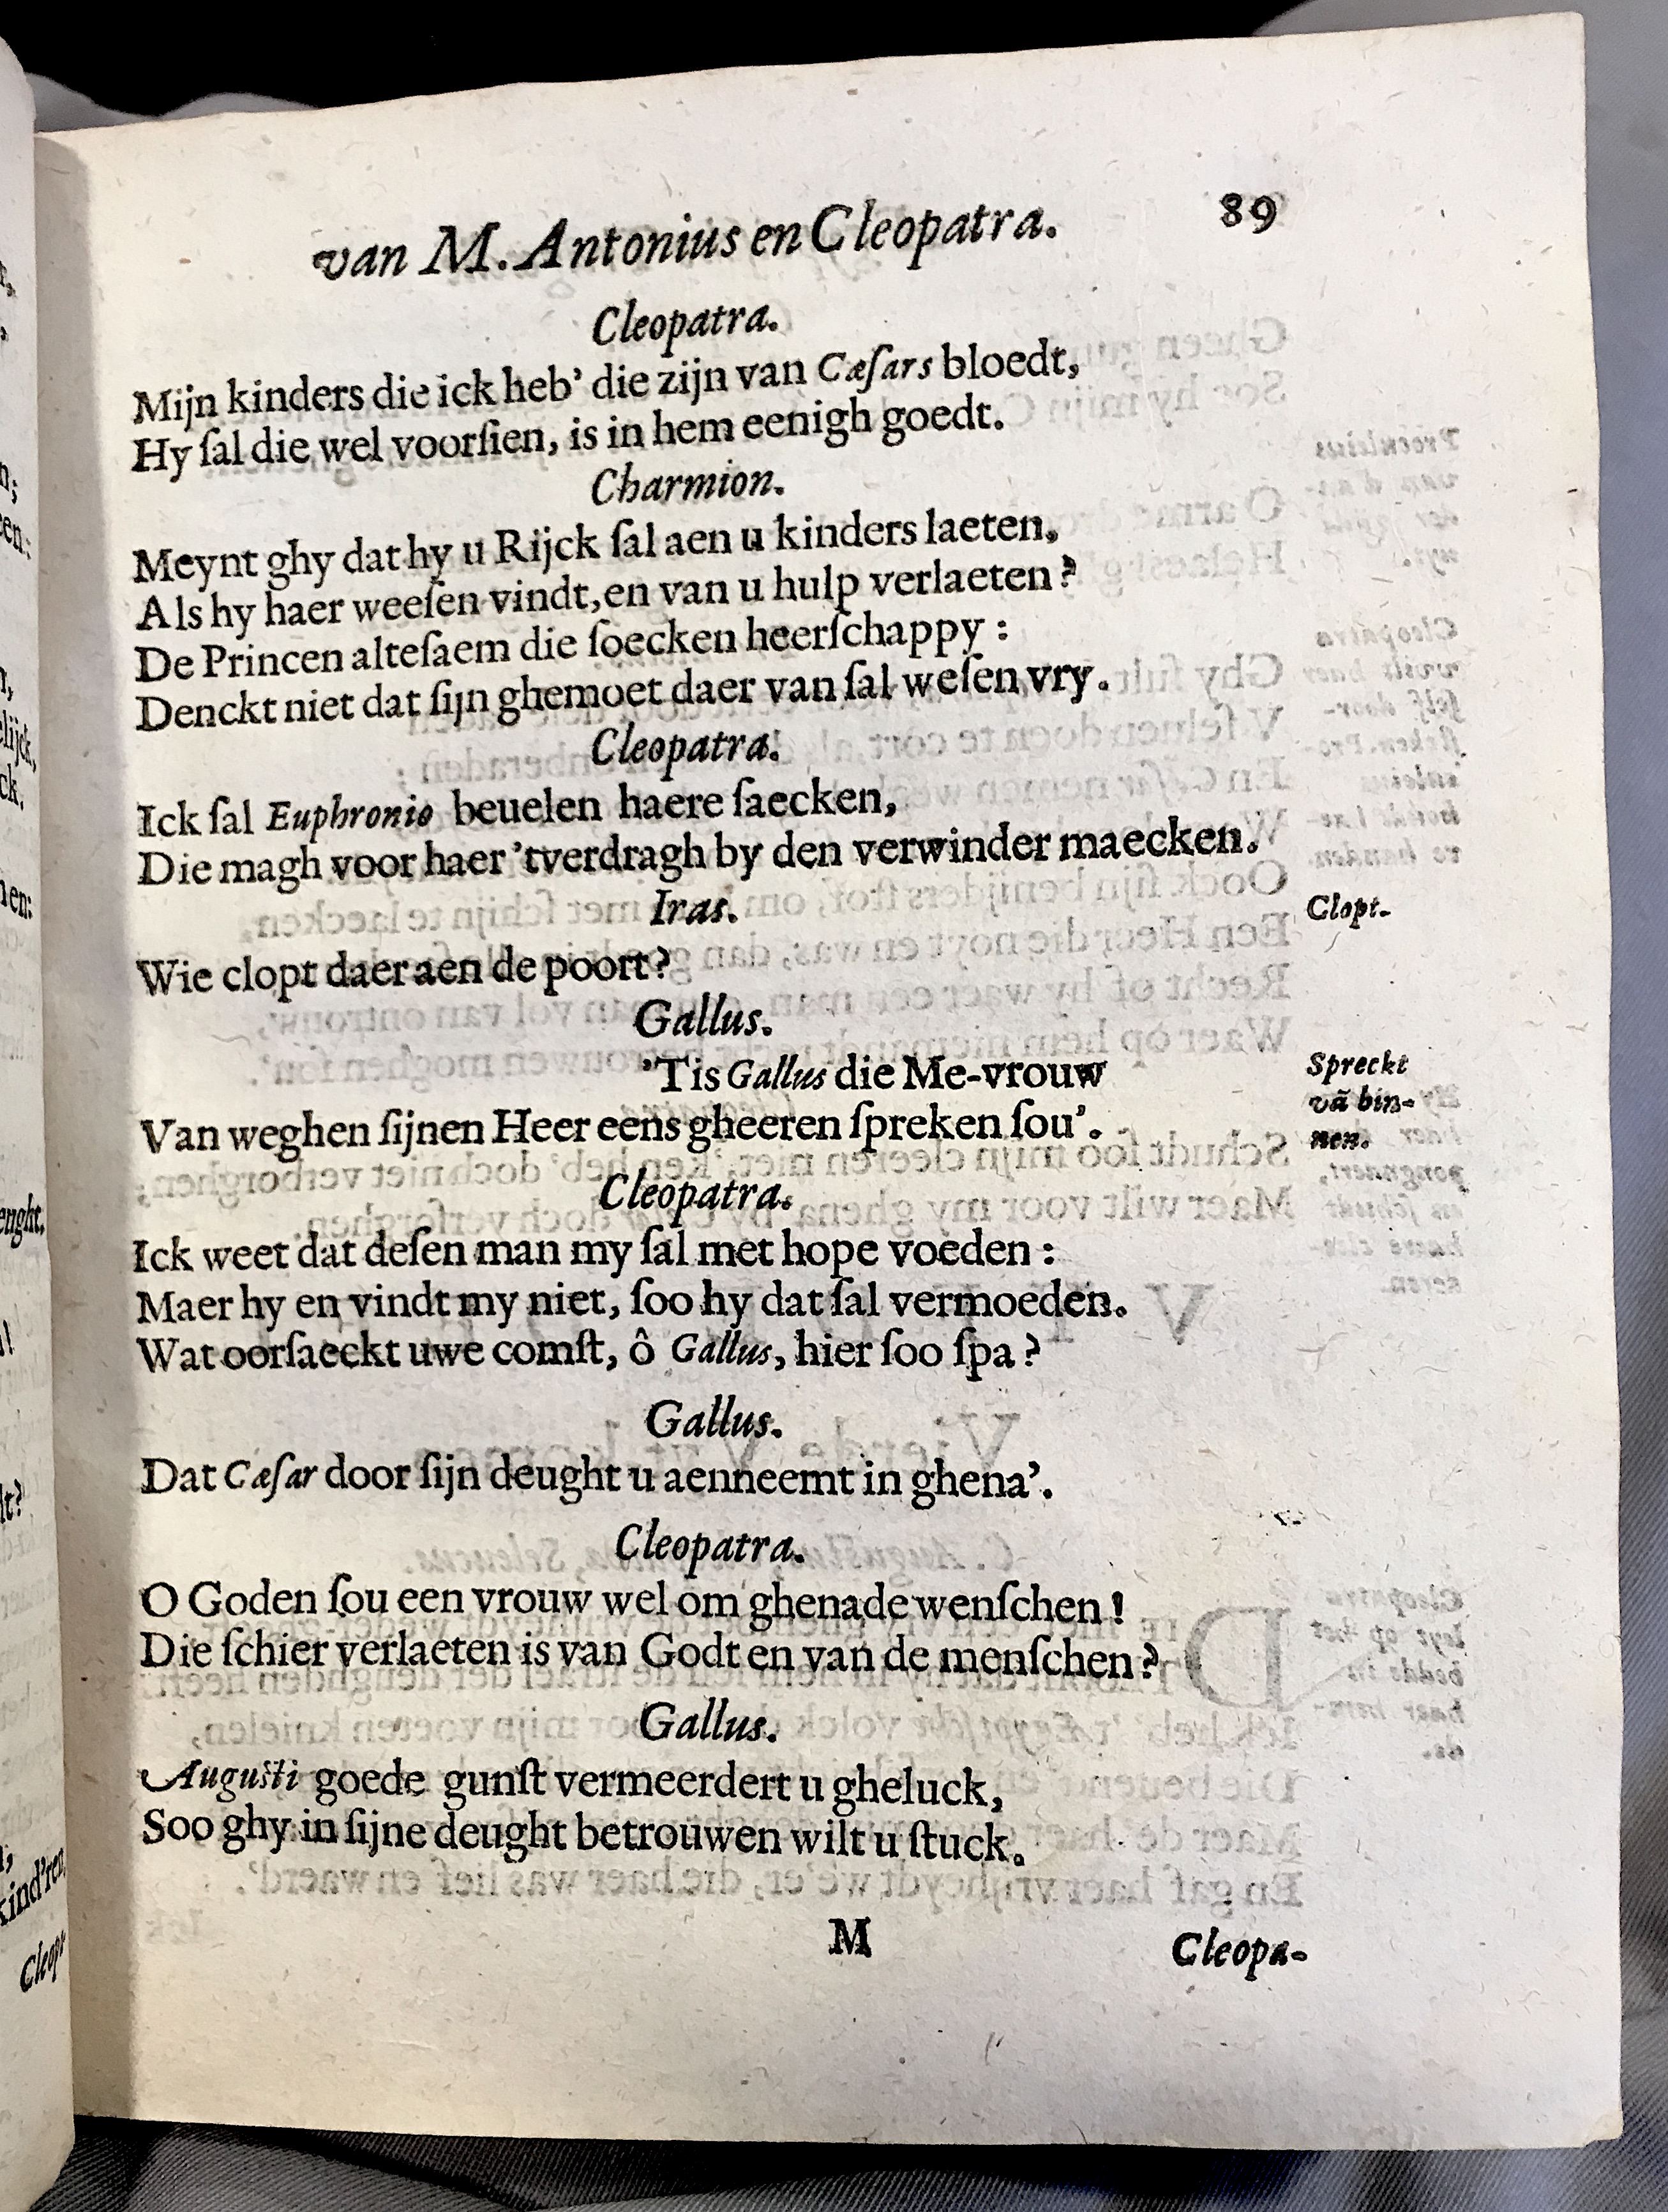 van M. Antonius en Cleopatra. 89
Cleopatra.
Mijn kinders die ick heb' die zijn van Cæſars bloedt,
Hy ſal die wel voorſien, is in hem eenigh goedt.
Charmion.
Meynt ghy dat hy u Rijck ſal aen u kinders laeten,
Als hy haer weeſen vindt, en van u hulp verlaeten?
De Princen alteſaem die ſoecken heerſchappy:
Denckt niet dat ſijn ghemoet daer van ſal weſen vry.
Cleopatra.
Ick ſal Euphronio beuelen haere ſaecken,
Die magh voor haer 'tverdragh by den verwinder maecken.
Iras.
Clopt.
Wie clopt daer aen de poort?
Gallus.
'Tis Gallus die Me-vrouw
Van weghen ſijnen Heer eens gheeren ſpreken ſou'.
Spreckt
vã bin-
nen.
Cleopatra.
Ick weet dat deſen man my ſal met hope voeden:
Maer hy en vindt my niet, ſoo hy dat ſal vermoeden.
Wat oorſaeckt uwe comſt, ô Gallus, hier ſoo ſpa?
Gallus.
Dat Cæſar door ſijn deught u aenneemt in ghena'.
Cleopatra.
O Goden ſou een vrouw wel om ghenade wenſchen!
Die ſchier verlaeten is van Godt en van de menſchen?
Gallus.
Auguſti goede gunſt vermeerdert u gheluck,
Soo ghy in ſijne deught betrouwen wilt u ſtuck.
M Cleopa-